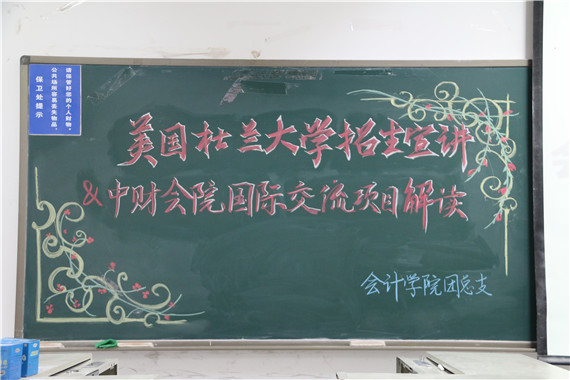 请保管好您的个人财物。
公共场所容易丢失物品，
保卫处提示
美国杜兰大学招生宣讲
&中财会院国际交流项目解读
会计学院团总支